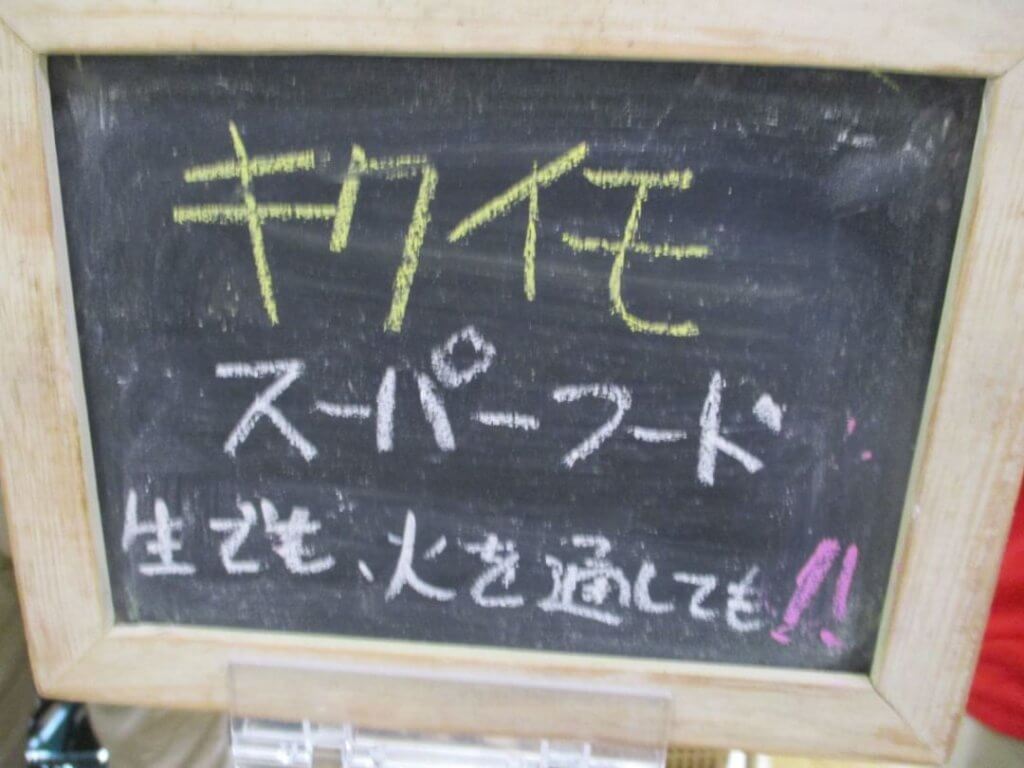 キクイモ
スーパーフード
生でも、火を通しても!!